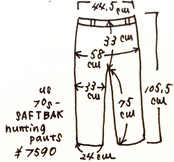 44.5cm
33
cm
58
cm
33
cm
75
cm
105.5
cm
24cm
US
70s-
SAFTBAK
hunting
pants
¥7590